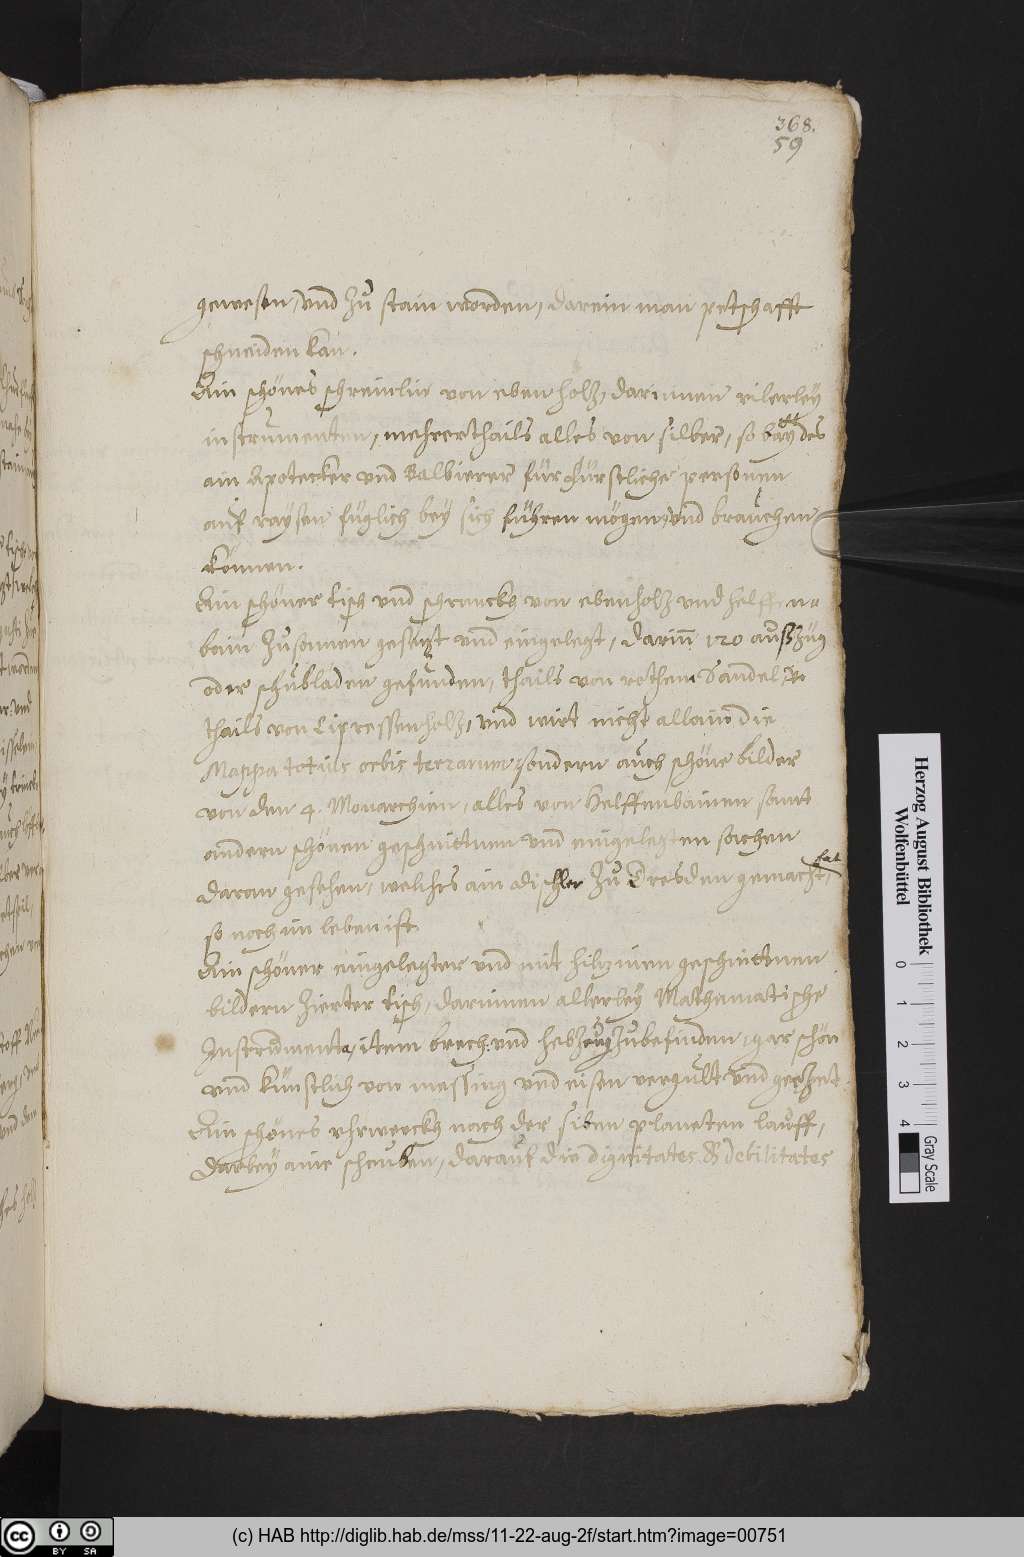 368.
59
gewesen, vnd Zu stain worden, darein man petschafft
schneiden kan.
Ain schönes schreinlin von ebenholz, darinnen vilerley
instrumenten, mehrerthails alles von silber, so baydes
ain Apotecker vnd Balbierer für fürstliche personen
auf raysen füglich bey sich führen mögen, vnd brauchen
können.
Ain schöner tisch vnd schranckh von ebenholz vnd helffen-
bain Zusamen gesetzt vnd eingelegt, darinn 120 außzüg
oder schubladen gefunden, thails von rothem Sandel,
thails von Cipressenholz, vnd wirt nicht allain die
Mappa totius orbis terrarum, sondern auch schöne bilder
von den 4. Monarchien, alles von Helffenbainen samt
andern schönen geschnittnen vnd eingelegten sachen
daran gesehen, welches ain dischler Zu Dresden gemacht, hat
so noch im leben ist.
Ain schöner eingelegter vnd mit geschnittnen
bildern Zierter tisch, darinnen allerley Mathematische
Instrumenta, item brech: vnd hebzeug Zubefinden, gar schön
vnd künstlich von messing vnd eisen vergült vnd geezt.
Ain schönes vhrwerckh nach der siben planeten lauff,
darbey aine scheuben, darauf die dignitates & debilitates
Herzog August Bibliothek
Wolfenbüttel
0 1 2 3 4
Gray Scale
cc BY SA
(c) HAB http://diglib.hab.de/mss/11-22-aug-2f/start.htm?image=00751